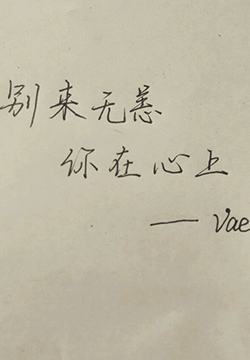 别来无恙
你在心上
— Vae